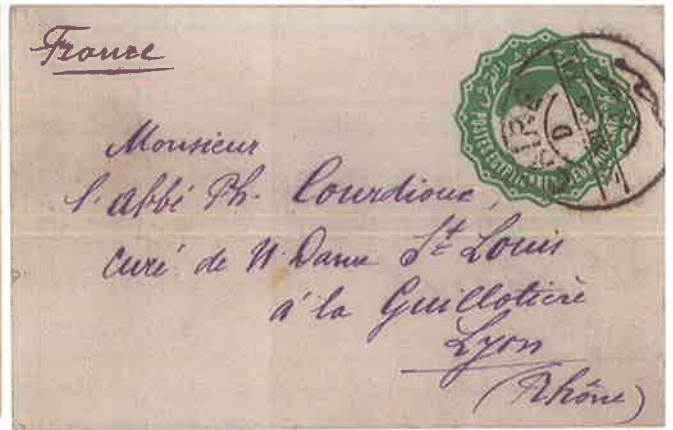 France
Monsieur
l'abbé Ph. Courdioux,
curé de N. Dame St Louis
à la Guillotière
Lyon
(Rhône)
POSTES EGYPTIENNES